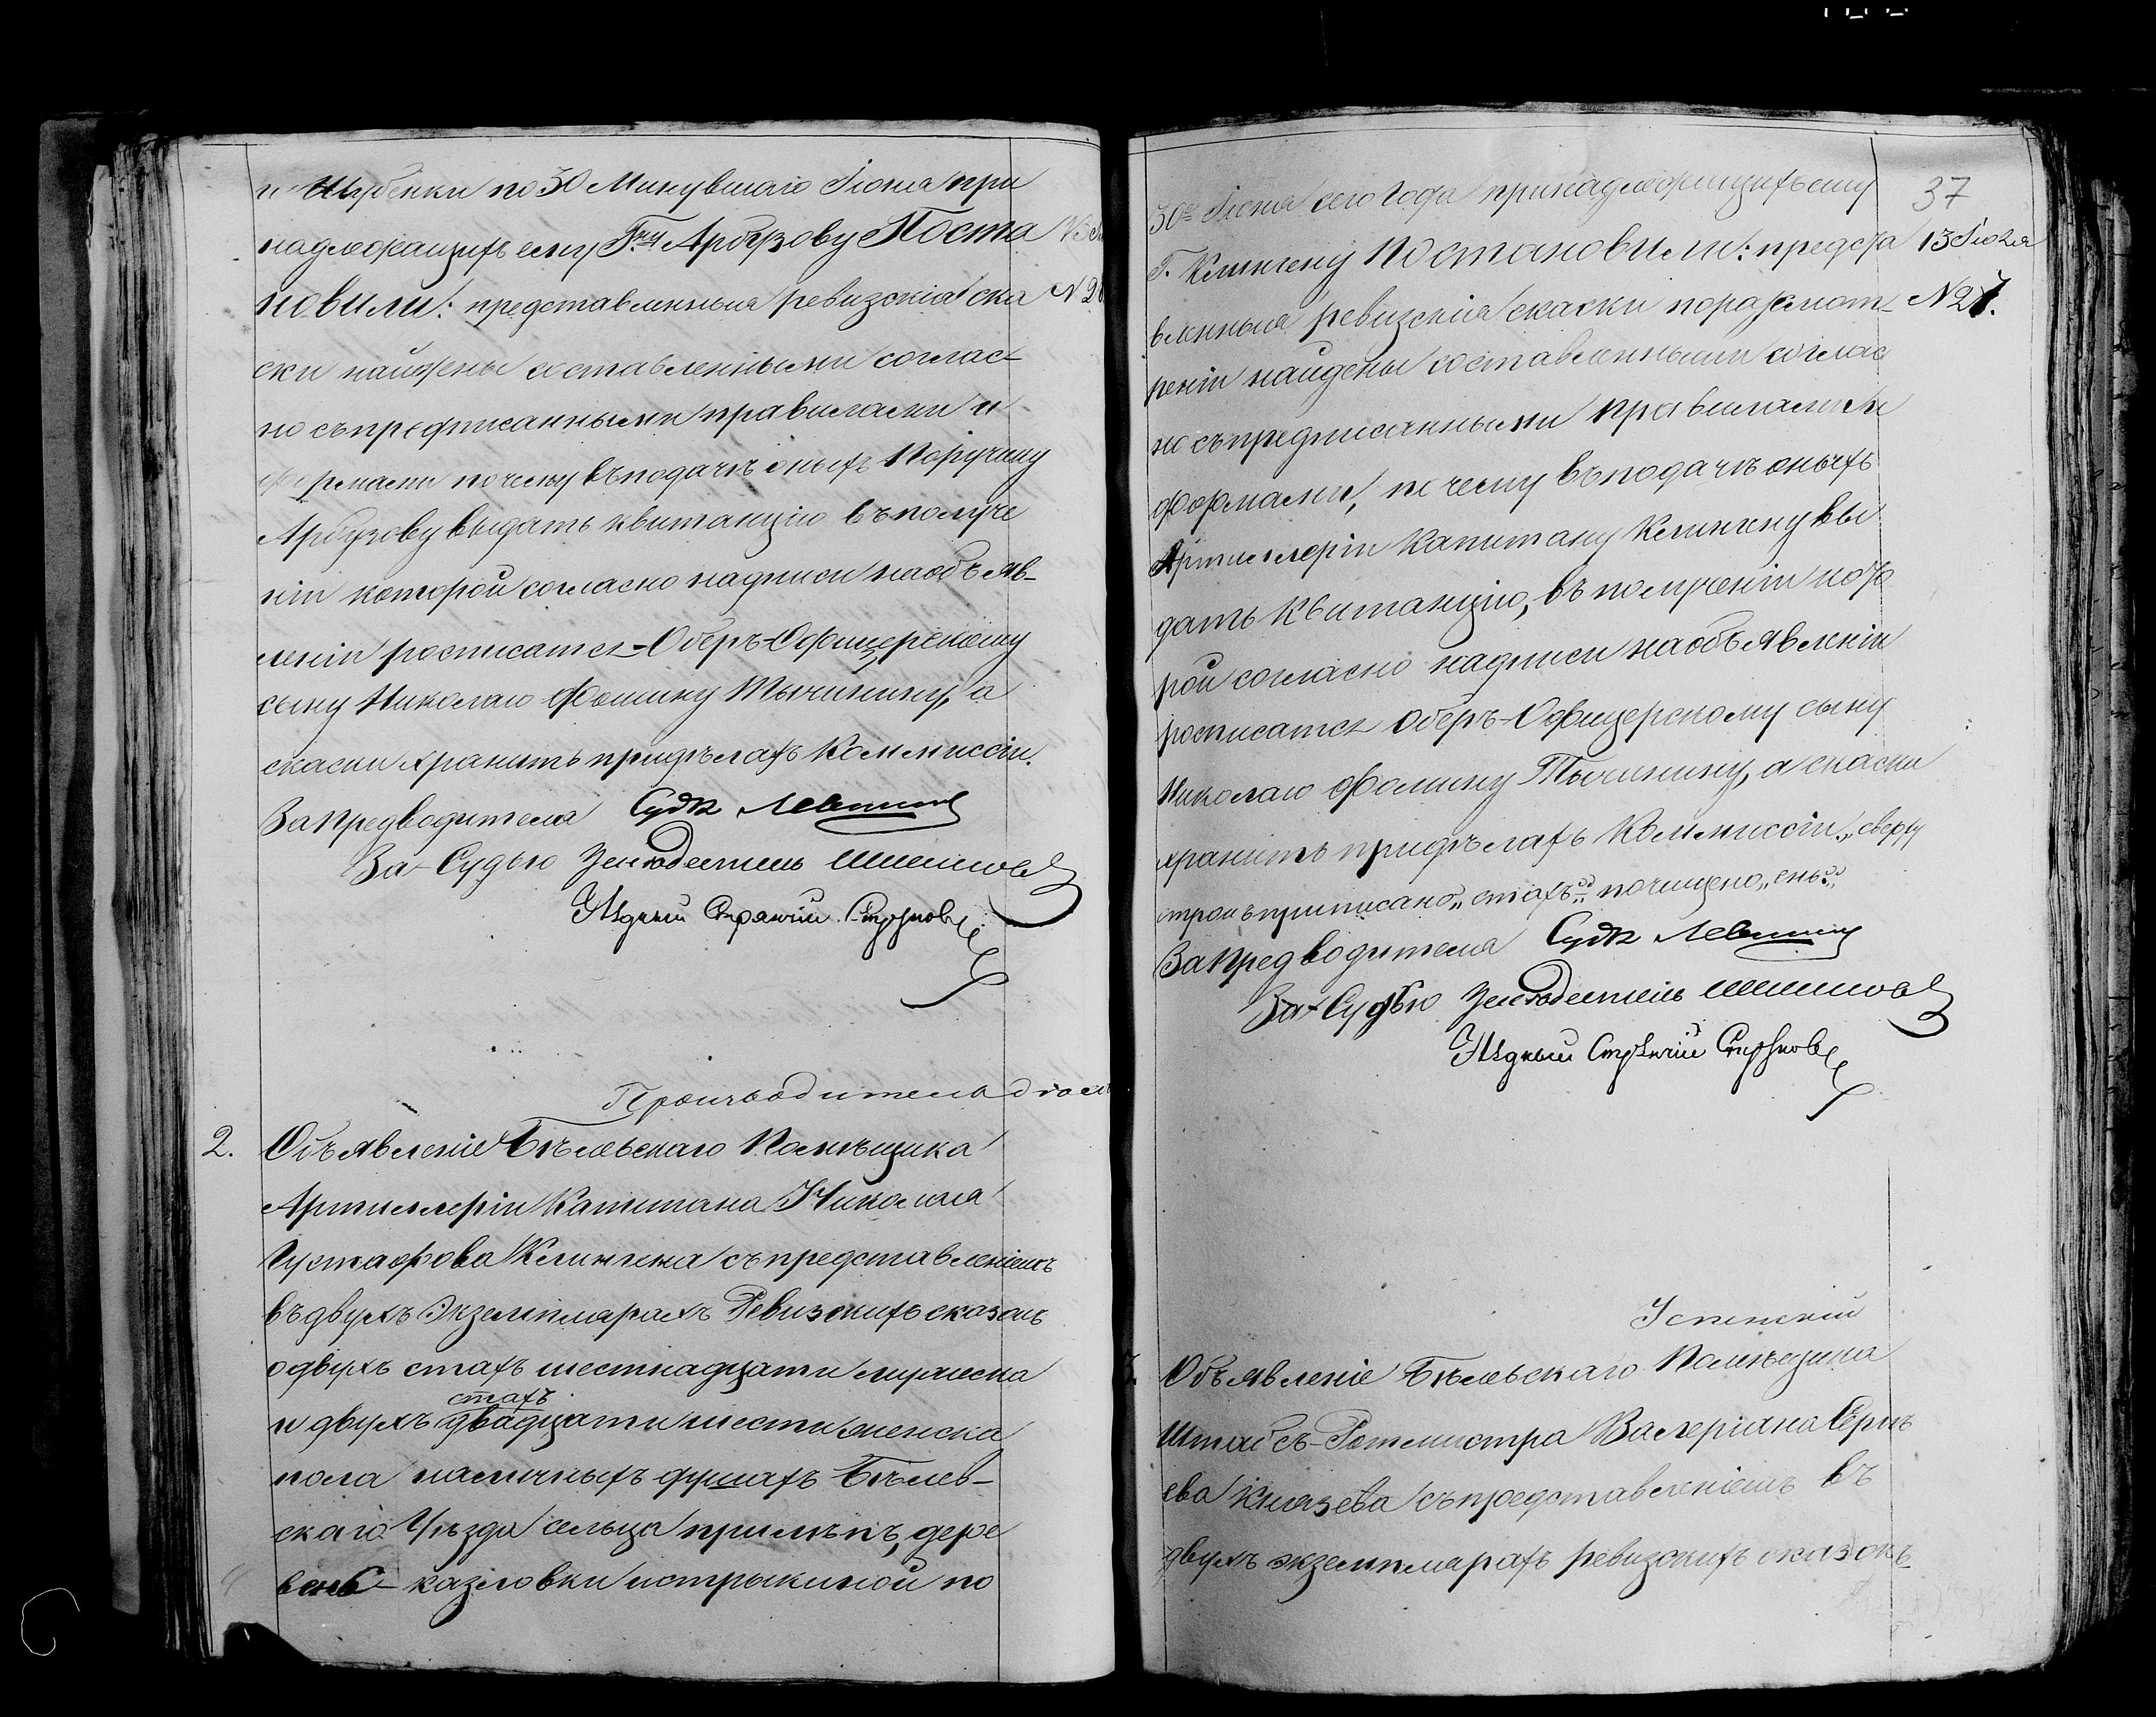 и Шубенки по 30 Минувшаго Іюня при
надлежащихъ ему Г.ну Арбузову Поста
новили: представленныя ревизскія ска
ски найдены составленными соглас-
но съ предписанными правилами и
формами почему въ подачѣ оныхъ Поручику
Арбузову выдать квитанцію въ получе
ніи которой согласно надписи на объяв-
леніи росписатся Оберъ-Офицерскому
сыну Николаю Фомину Тычинину, а
скаски хранить при дѣлахъ Коммиссіи.
За Предводителя Судья Левшинъ
За Судью Засѣдатель Шишловъ
Уѣздный Стряпчій
Производителя дѣлъ
2. Объявленіе Бѣлевскаго Помѣщика
Артиллеріи Капитана Николая
Густафова Клингена съ представленіемъ
въ двухъ Экземплярахъ Ревизскихъ сказокъ
о двухъ стахъ шестнадцати мужеска
стахъ
и двухъ двадцати шести женска
пола наличныхъ душахъ Бѣлев-
скаго Уѣзда сельца Прилѣпъ, дере
вень Казловки и стрыкиной по
37
30е Іюня сего Года принадлежащихъ ему
Г. Клингену Постановили: предста
13 Іюля
вленныя ревизскія скаски по разсмот-
N 27.
реніи найдены составленными соглас
но съ предписанными правилами и
формами, по чему въ подачѣ оныхъ
Артиллеріи Капитану Клингену вы
дать Квитанцію, въ полученіи кото
рой согласно надписи на объявленіи
росписатся Оберъ-Офицерскому сыну
Николаю Фомину Тычинину, а скаски
хранить при дѣлахъ Коммиссіи. „сверху
строкъ приписано „стахъ" почищено „ень"
За Предводителя Судья Левшинъ
За Судью Засѣдатель Шишловъ
Уѣздный Стряпчій
Успенскій
3. Объявленіе Бѣлевскаго Помѣщика
Штабсъ-Ротмистра Валеріана Сергѣ
ева Князева съ представленіемъ въ
двухъ экземплярахъ ревизскихъ сказокъ